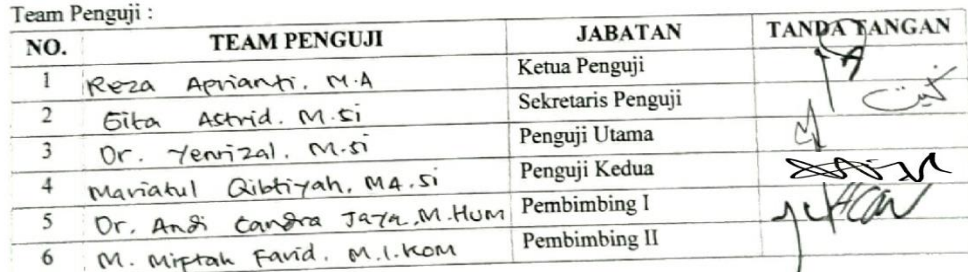 Team Penguji :
NO. TEAM PENGUJI JABATAN TANDA TANGAN
1 Reza Aprianti, M.A Ketua Penguji
2 Gita Astrid. M.Si Sekretaris Penguji
3 Dr. Yenrizal. M.Si Penguji Utama
4 Mariatul Qibtiyah, MA.Si Penguji Kedua
5 Dr. Andi Candra Jaya, M.Hum Pembimbing I
6 M. Miftah Farid. M.I.Kom Pembimbing II